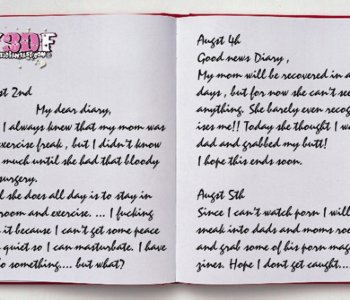 Y3DF
2nd
My dear diary,
I always knew that my mom was
exercise freak , but I didn't know
much until she had that bloody
surgery.
she does all day is to stay in
room and exercise. ... I fucking
it because I can't get some peace
quiet so I can masturbate. I have
something.... but what?
Augst 4h
Good news Diary ,
My mom will be recovered in a
days , but for now she can't see
anything. She barely even recog
ises me!! Today she thought I w
dad and grabbed my butt!
I hope this ends soon.
Augst 5th
Since I can't watch porn I will
sneak into dads and moms roo
and grab some of his porn mag
zines. Hope I dont get caught....